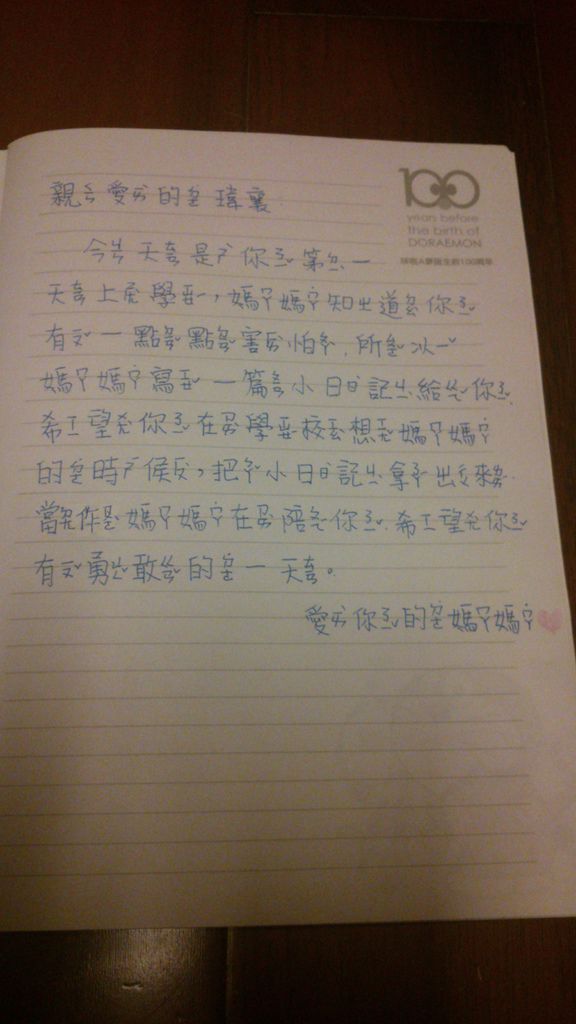 100
years before
the birth of
DORAEMON
哆啦A夢誕生前100周年
親愛的瑋襄
今天是你第一
天上學,媽媽知道你
有一點點害怕,所以
媽媽寫一篇小日記給你,
希望你在學校想媽媽
的時候,把小日記拿出來
當作媽媽在陪你.希望你
有勇敢的一天。
愛你的媽媽